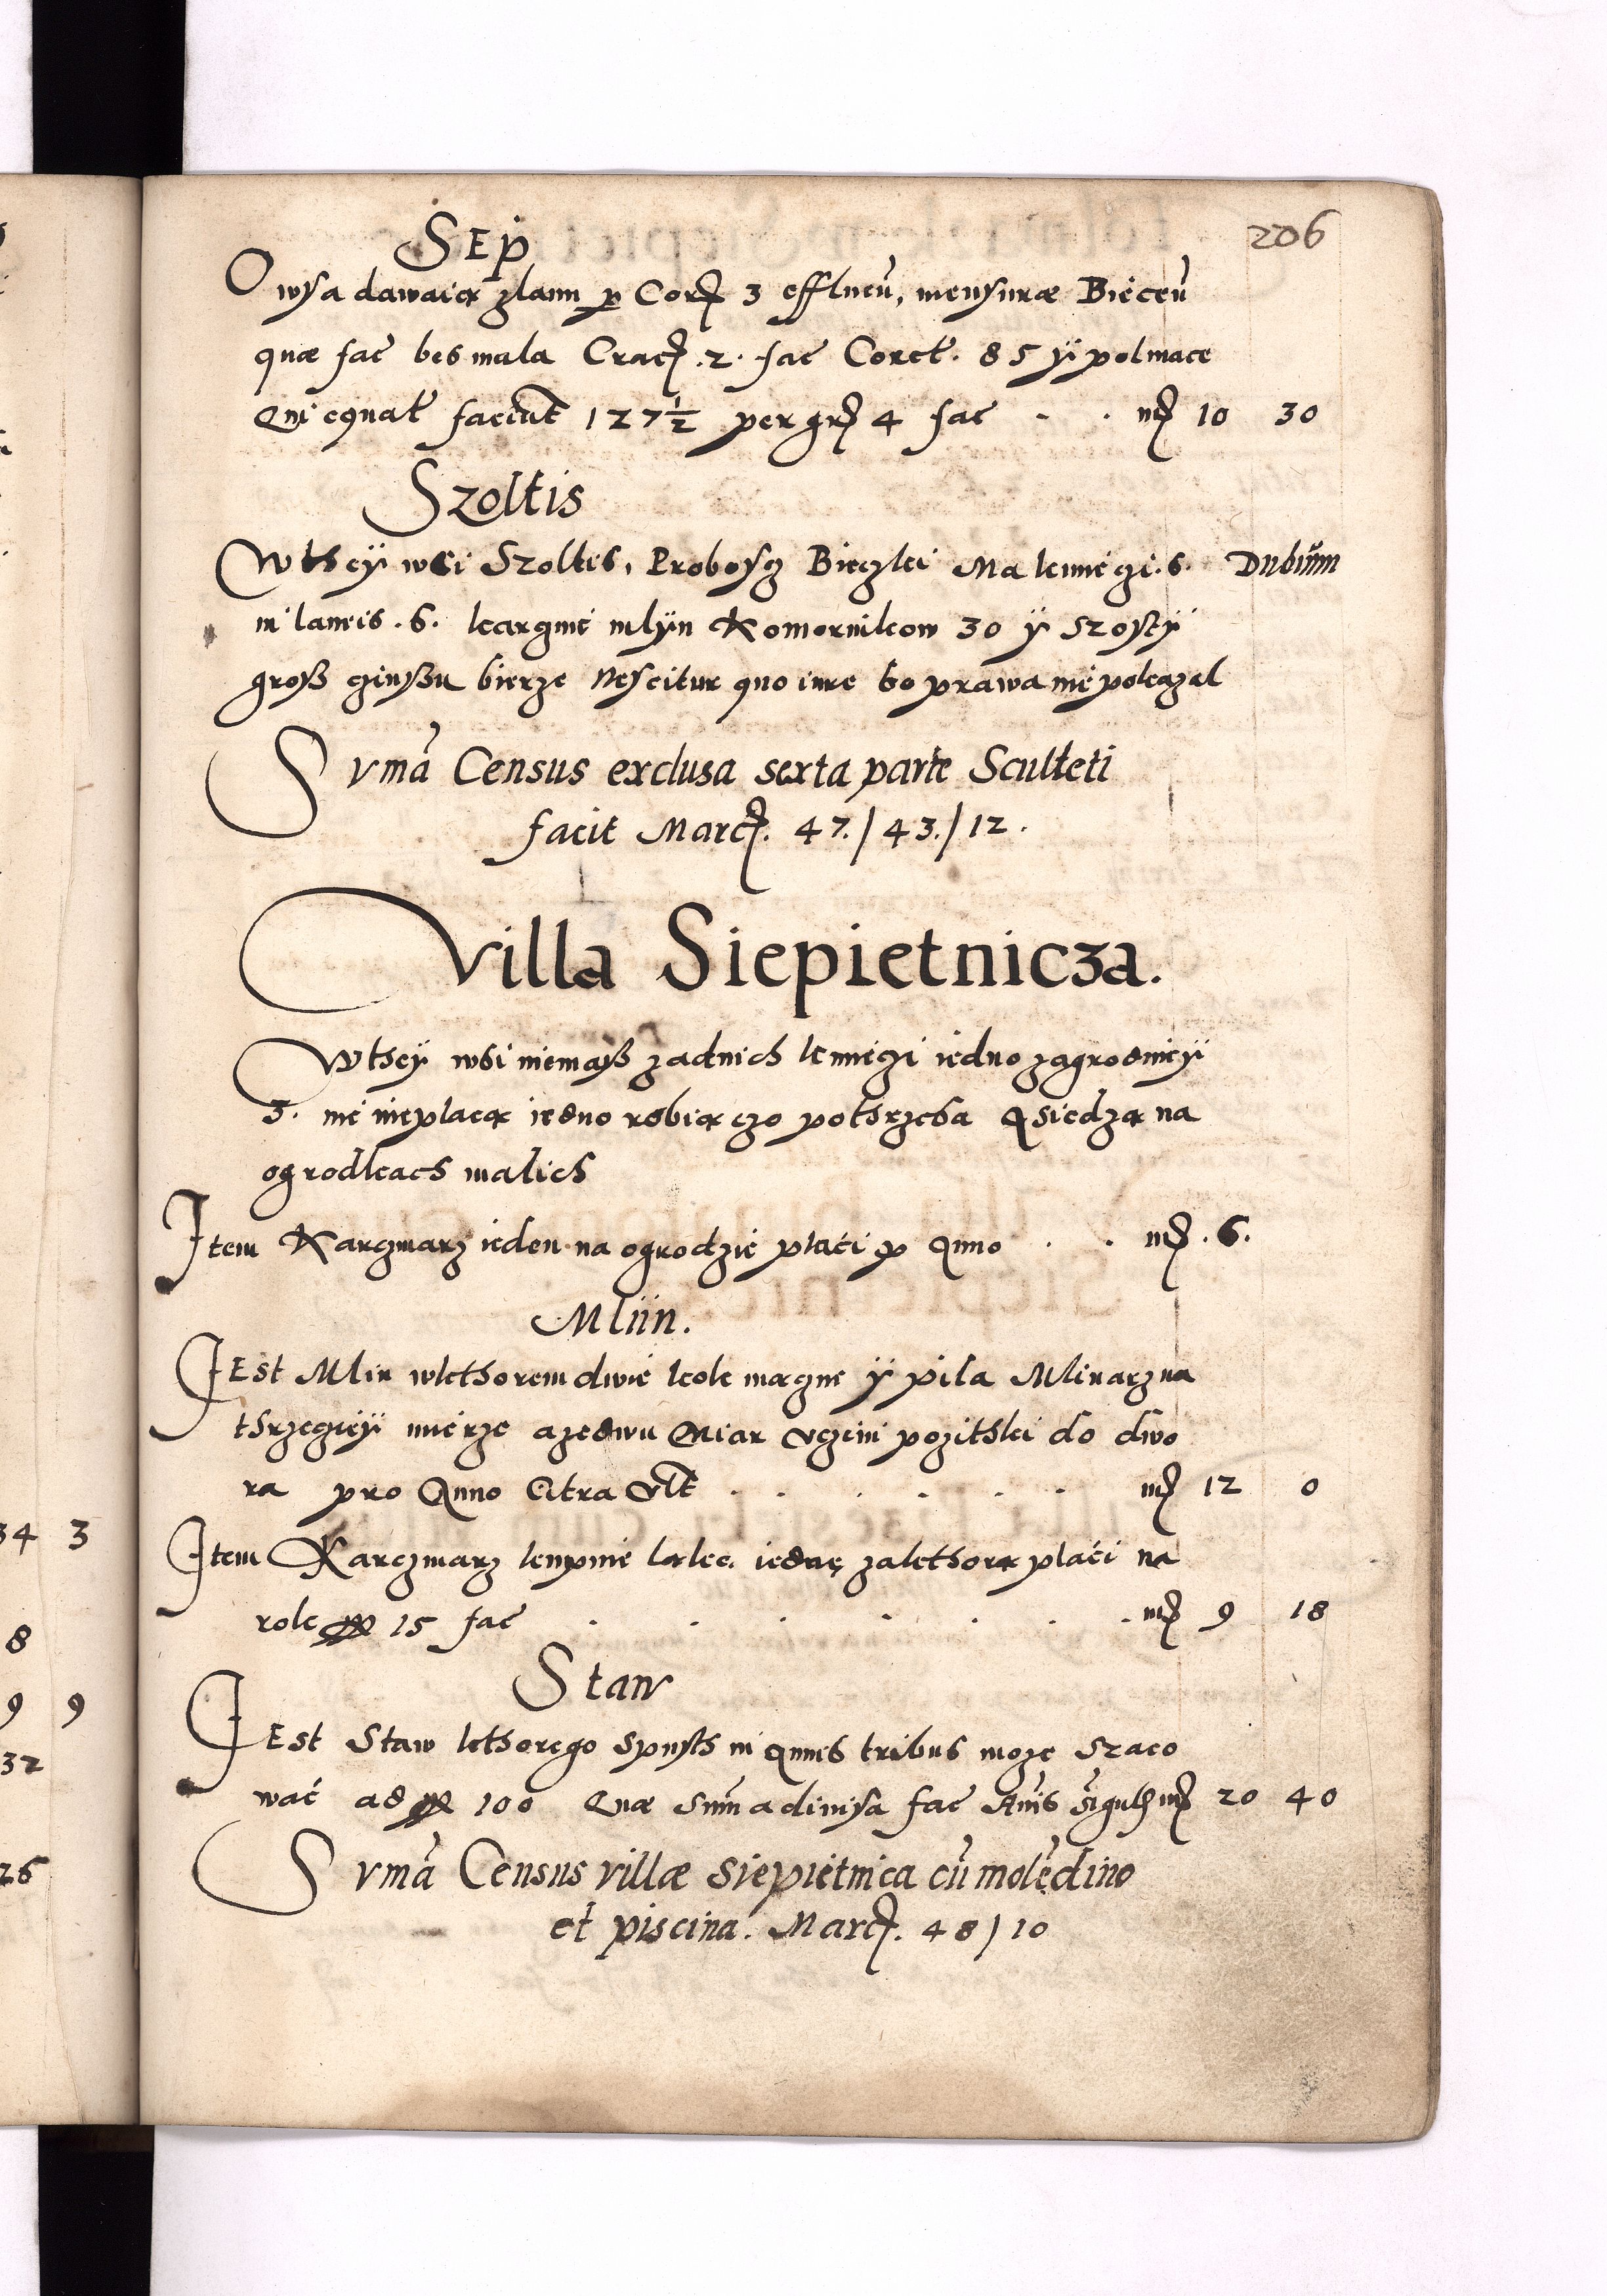 206
Sep
Owsa dawaią zlanu per Corꝫ 3 effluen̄, mensuræ Biecen̄
quæ fac̄ bes mala Cracꝫ .2. fac̄ Coret̄. 85 ÿ polmace
Qui equat̄ faciūt 127½ per grꝫ 4 fac̄ . . mꝫ 10 30
Szoltis
Wthey wsi Szoltis, Probosz Bieczki Ma kmiéczi .6. Dubiūm
in laneis .6. karczmé mlÿn Komornikow 30 ÿ szostÿ
groß czinßu bierze Nescitur quo iure bo prawa nié pokazal
Sum̄a Census exclusa sexta parte Sculteti
facit Marcꝫ. 47./43./12.
Villa Siepietnicza.
Wthey wsi niemaß zadnich kmiéczi iedno zagrodnicÿ
3. nié nieplacą iedno robią czo pothrzeba Qsiedzą na
ogrodkach malich
Item Karczmarz ieden na ogrodzié placi p Anno . . mꝫ .6.
Mliin.
IEst Mlin wkthorem dwié kole mączne ÿ pila Mlinarz na
thrzecziéÿ miérze azedwu Miar vczini pozithki do dwo
ra pro Anno Citra vlt̄ . . . . . . mꝫ 12 0
Item Karczmarz kupnié łąkę iednę zakthorą placi na
role 15 fac̄ . . . . . . . mꝫ 9 18
Staw
IEst Staw kthorego spusth in Annis tribus moze szaco
wać ad 100 Quæ sum̄a diuisa fac̄ Ańis sīgulꝫ mꝫ 20 40
Sum̄a Census villæ Siepietnica cū molēdino
et piscina. Marcꝫ. 48/10
34 3
8
9 9
32
26